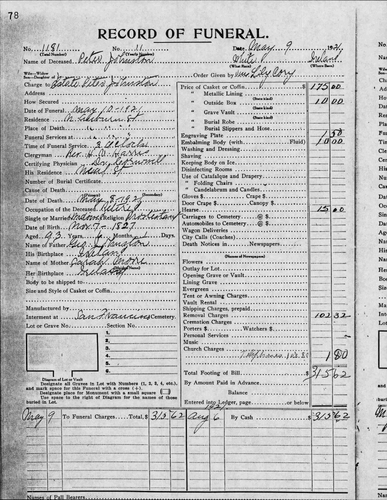 78
RECORD OF FUNERAL.
No. 1181 No. 11 Date, May 9 1921
Name of Deceased, Peter Johnston White Ireland
(What Race) (Where Born)
Order Given by
Charge to Estate Peter Johnston
Address
How Secured
Date of Funeral, May 10-1921
Residence
Place of Death,
Funeral Services at
Time of Funeral Service,
Clergyman Rev.
Certifying Physician
His Residence
Number of Burial Certificate,
Cause of Death,
Date of Death, May 8-1921
Occupation of the Deceased, Retired
Single or Married Religion
Date of Birth, Nov. 7-1827
Aged, 93 Years, Months, 1 Days.
Name of Father, Johnston
His Birthplace Ireland
Name of Mother Sarah Moore
Her Birthplace Ireland
Body to be shipped to
Size and Style of Casket or Coffin,
Manufactured by
Interred at San Francisco Cemetery.
Lot or Grave No. Section No.
1.
2.
3.
4.
5.
6.
Diagram of Lot or Vault
Designate all Graves in Lot with Numbers (1, 2, 3, 4, etc.), and mark space for this Funeral with a cross (+)
Designate place for Monument with a small square □
Use space to the right of Diagram for the names of those buried in Lot.
Price of Casket or Coffin $ 175 00
" Metallic Lining
" Outside Box 10 00
" Grave Vault
" Burial Robe
" Burial Slippers and Hose
Engraving Plate 1 50
Embalming Body (with Fluid) 10 00
Washing and Dressing
Shaving
Keeping Body on Ice
Disinfecting Rooms
Use of Catafalque and Drapery
" Folding Chairs
" Candelabrum and Candles
Gloves $ Crape $
Door Crape $ Canopy $
Hearse 15 00
Carriages to Cemetery @ $
Automobiles to Cemetery @ $
Wagon Deliveries
City Calls (Coaches)
Death Notices in Newspapers
(Names of Newspapers)
Flowers
Outlay for Lot
Opening Grave or Vault
Lining Grave
Evergreen
Tent or Awning Charges
Vault Rental
Shipping Charges, prepaid
Removal Charges 102 32
Cremation Charges
Porters $ Watchers $
Personal Services
Music
Church Charges
1 80
Total Footing of Bill $ 315 62
By Amount Paid in Advance
Balance
Entered into Ledger, page or below
May 9 To Funeral Charges, Total, $ 315 62 Aug 6 By Cash $ 315 62
Names of Pall Bearers